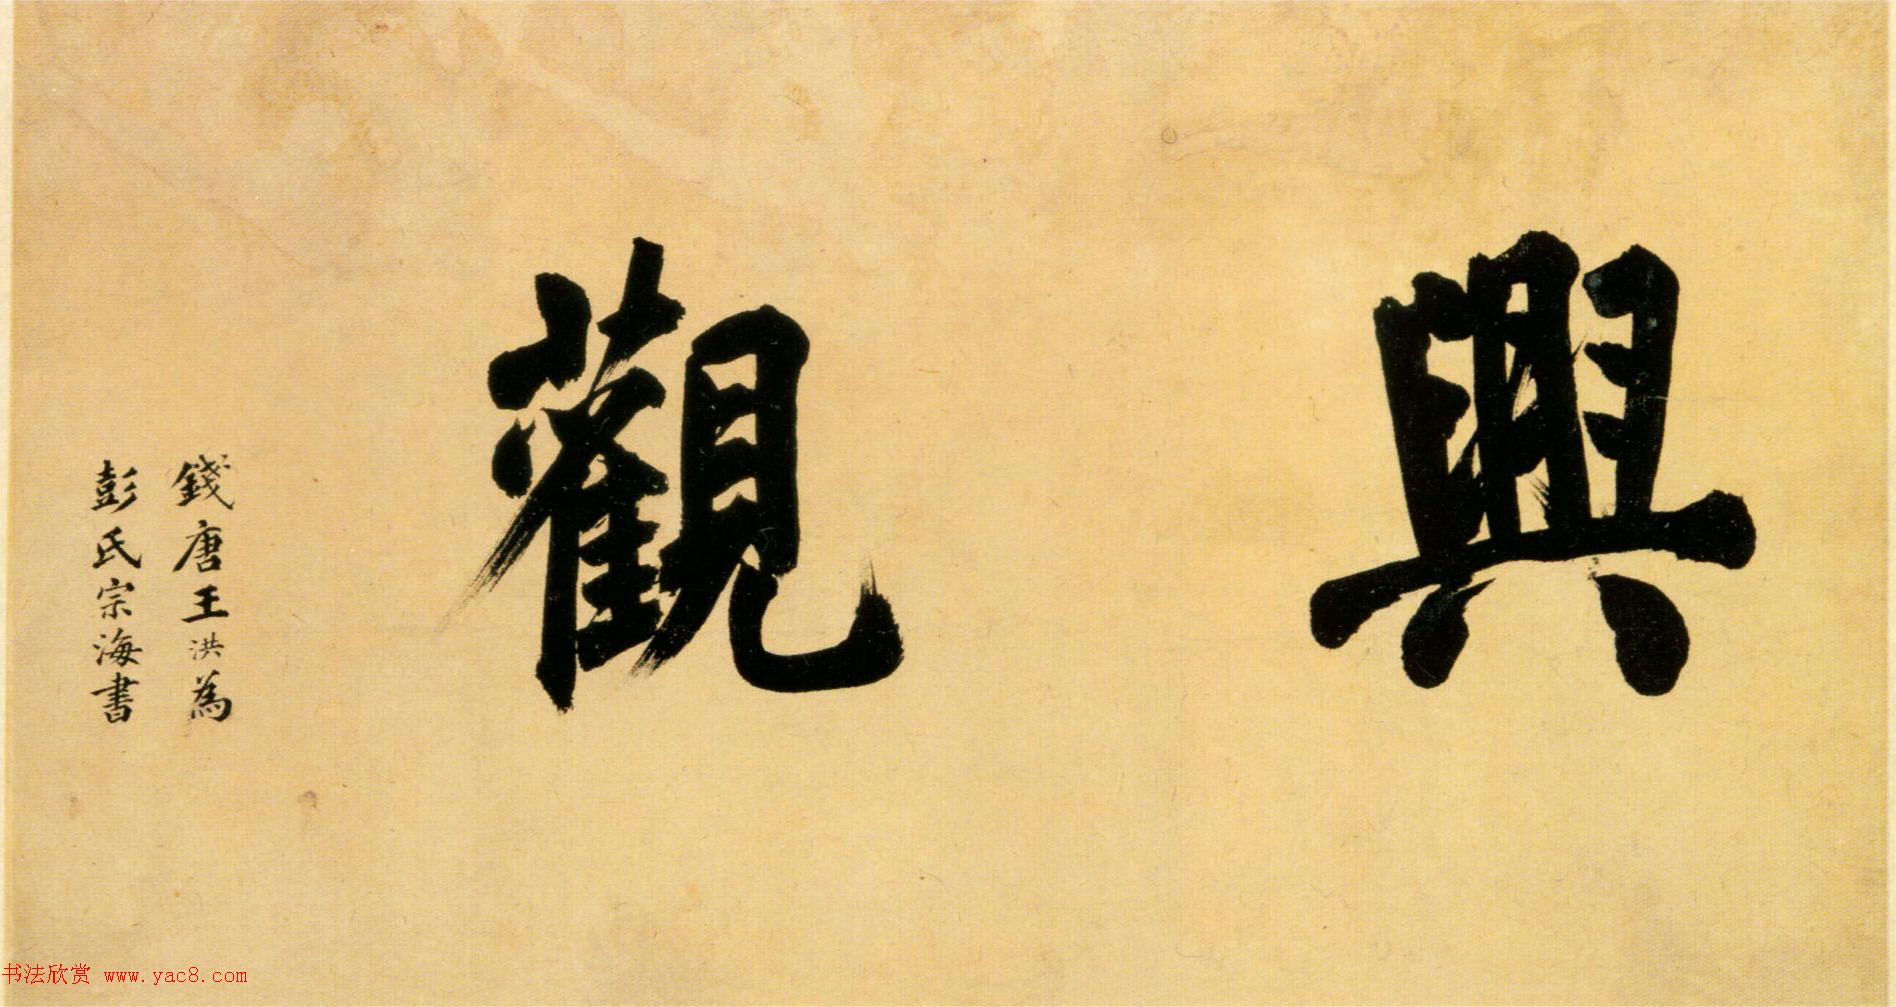 興觀
錢唐王洪為
彭氏宗海書
书法欣赏 www.yac8.com